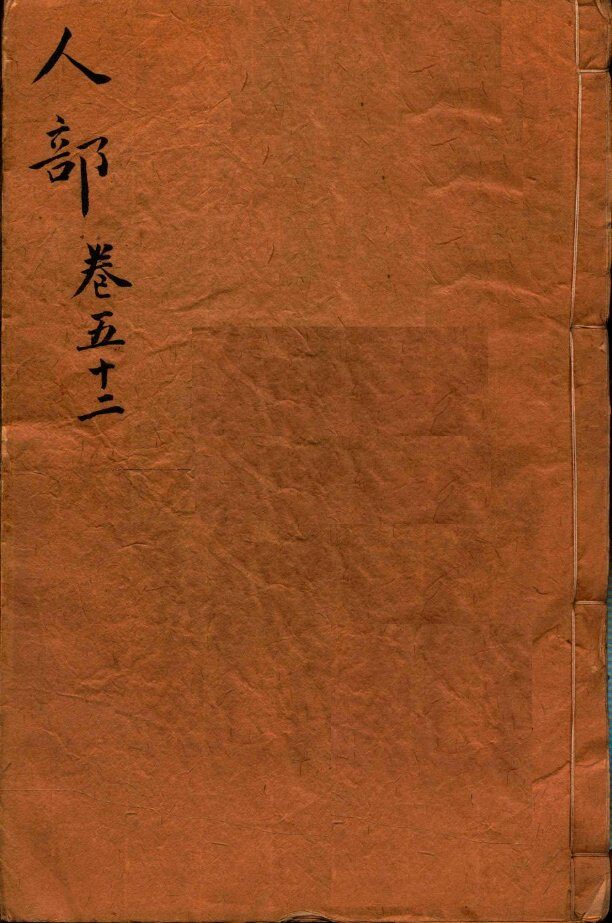 人部卷五十二